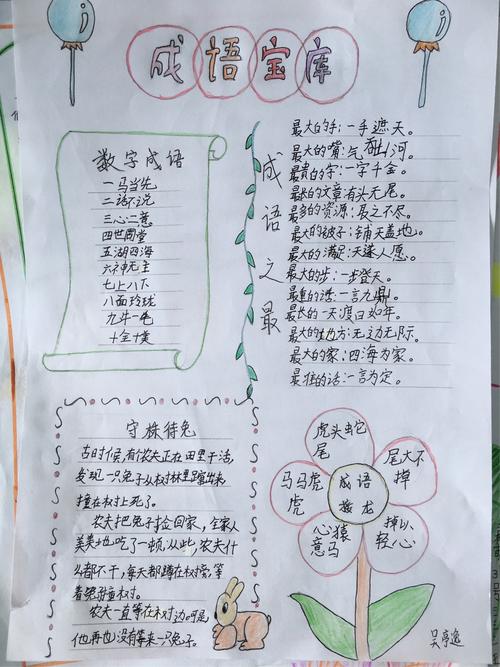 成语宝库
数字成语
一马当先
二话不说
三心二意
四世同堂
五湖四海
六神无主
七上八下
八面玲珑
九牛一毛
十全十美
成语之最
最大的手:一手遮天。
最大的嘴:气吞山河。
最贵的字:一字千金。
最长的文章有头无尾。
最多的资源:取之不尽。
最大的被子:铺天盖地。
最大的满足:天遂人愿。
最大的步:一步登天。
最重的话:一言九鼎。
最长的一天:度日如年。
最大的地方:无边无际。
最大的家:四海为家。
最佳的话:一言为定。
守株待兔
古时候,有农夫正在田里干活,
发现一只兔子从树林里蹿出来
撞在树上死了。
农夫把兔子捡回家,全家人
美美地吃了一顿,从此,农夫什
么都不干,每天都蹲在树旁,等
着兔子撞树。
农夫一直等在树边,可是
他再也没有等来一只兔子。
成语
接龙
虎头蛇
尾
尾大不
掉
掉以
轻心
心猿
意马
马马虎
虎